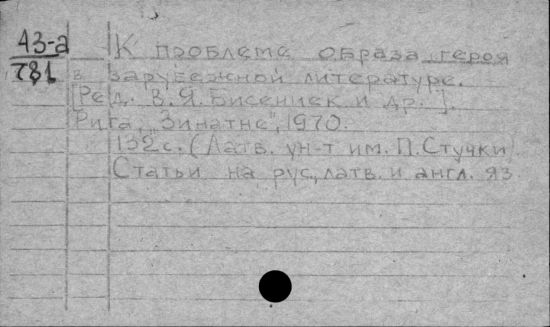 43-а К проблеме образа героя
781 в зарубежной литературе.
[Ред. В.Я. Бисениек и др.].
Рига, "Зинатне", 1970.
132 с. (Латв. ун-т им. П. Стучки)
Статьи на рус., латв. и англ. яз.